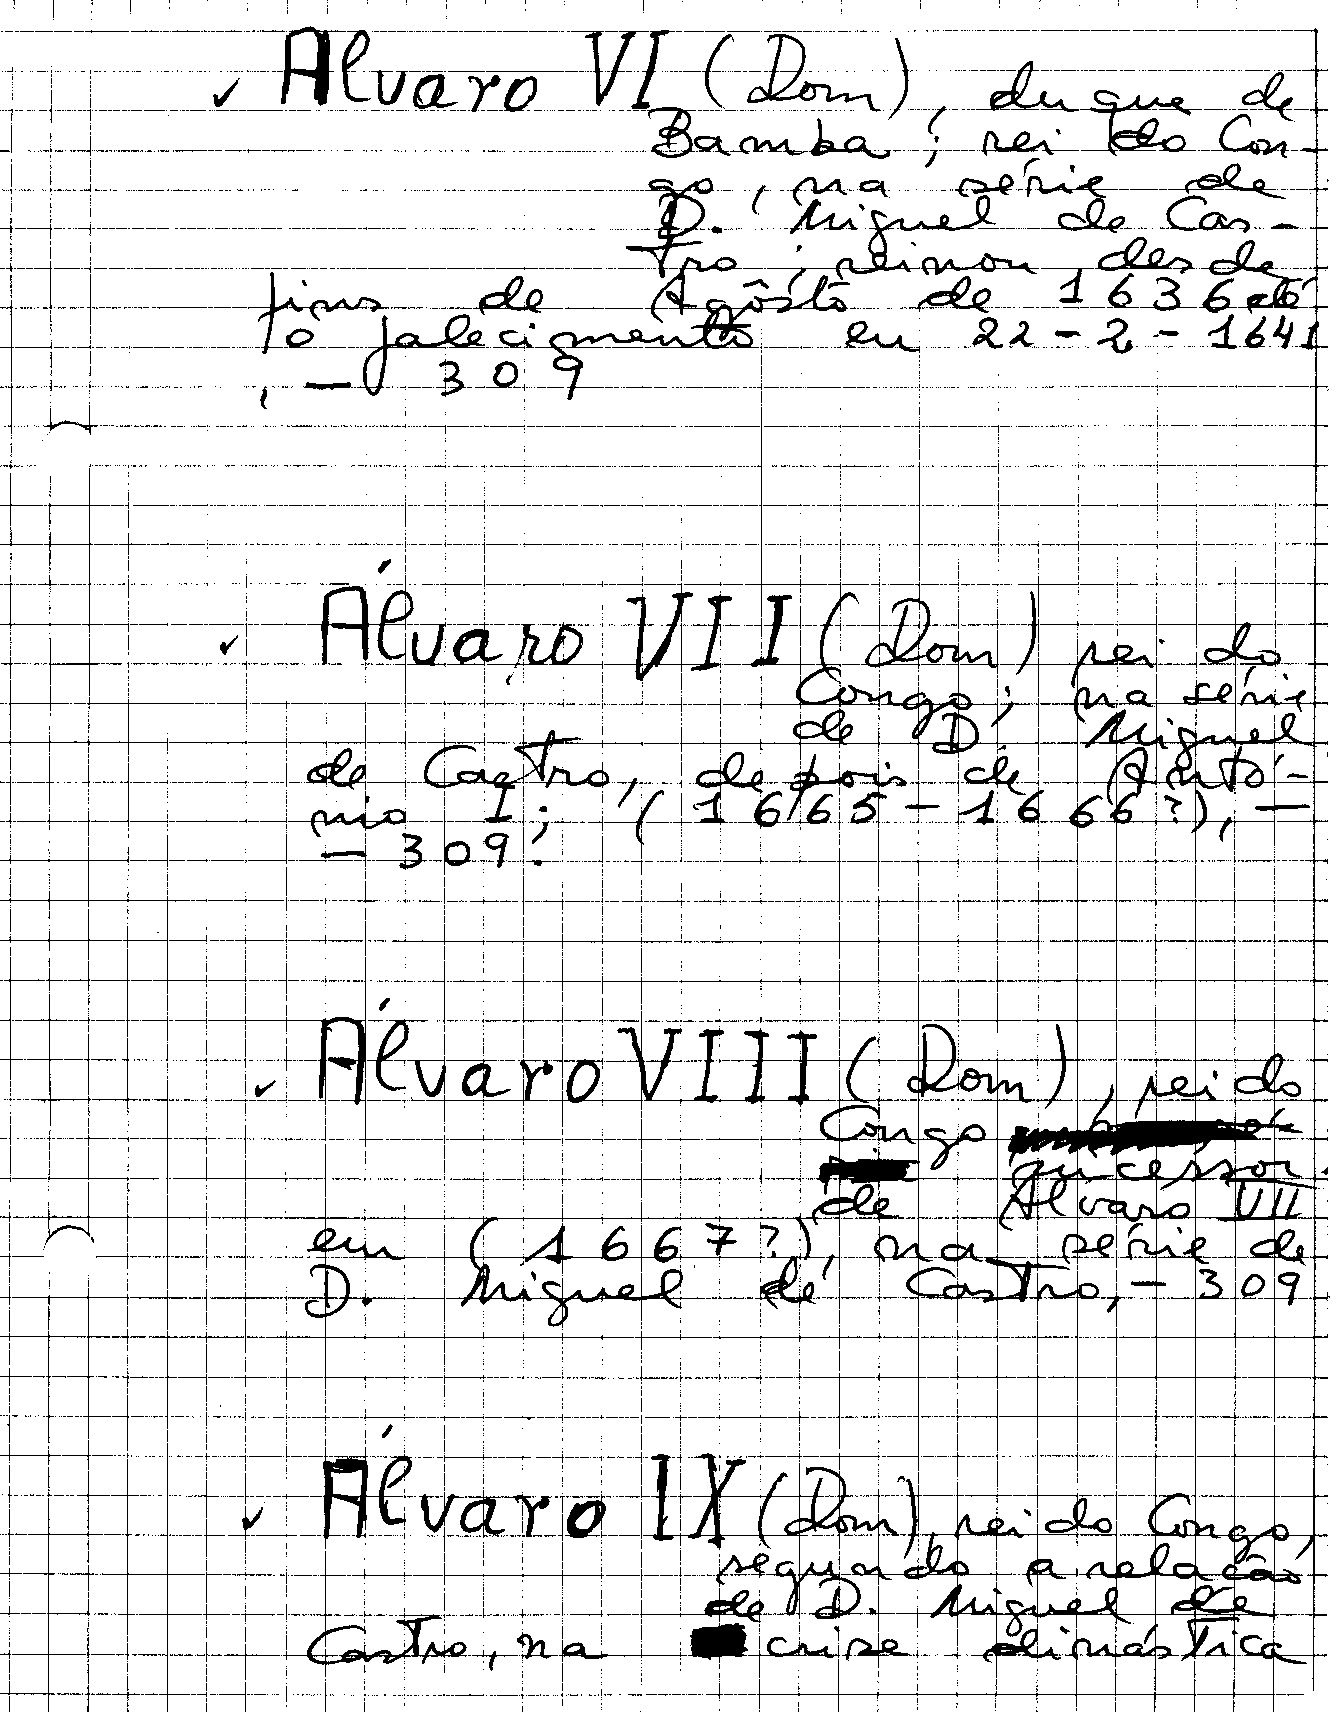 ✓ Álvaro VI (Dom), duque de
Bamba; rei do Con-
go, na série de
D. Miguel de Cas-
tro; reinou desde
fins de Agôsto de 1636 até
o falecimento em 22-2-1641
, — 309
✓ Álvaro VII (Dom) rei do
Congo; na série
de D. Miguel
de Castro, depois de Antó-
nio I; (1665-1666?), —
— 309.
✓ Álvaro VIII (Dom), rei do
Congo
sucessor
de Álvaro VII
em (1667?), na série de
D. Miguel de Castro, — 309
✓ Álvaro IX (Dom), rei do Congo,
segundo a relação
de D. Miguel de
Castro, na crise dinástica